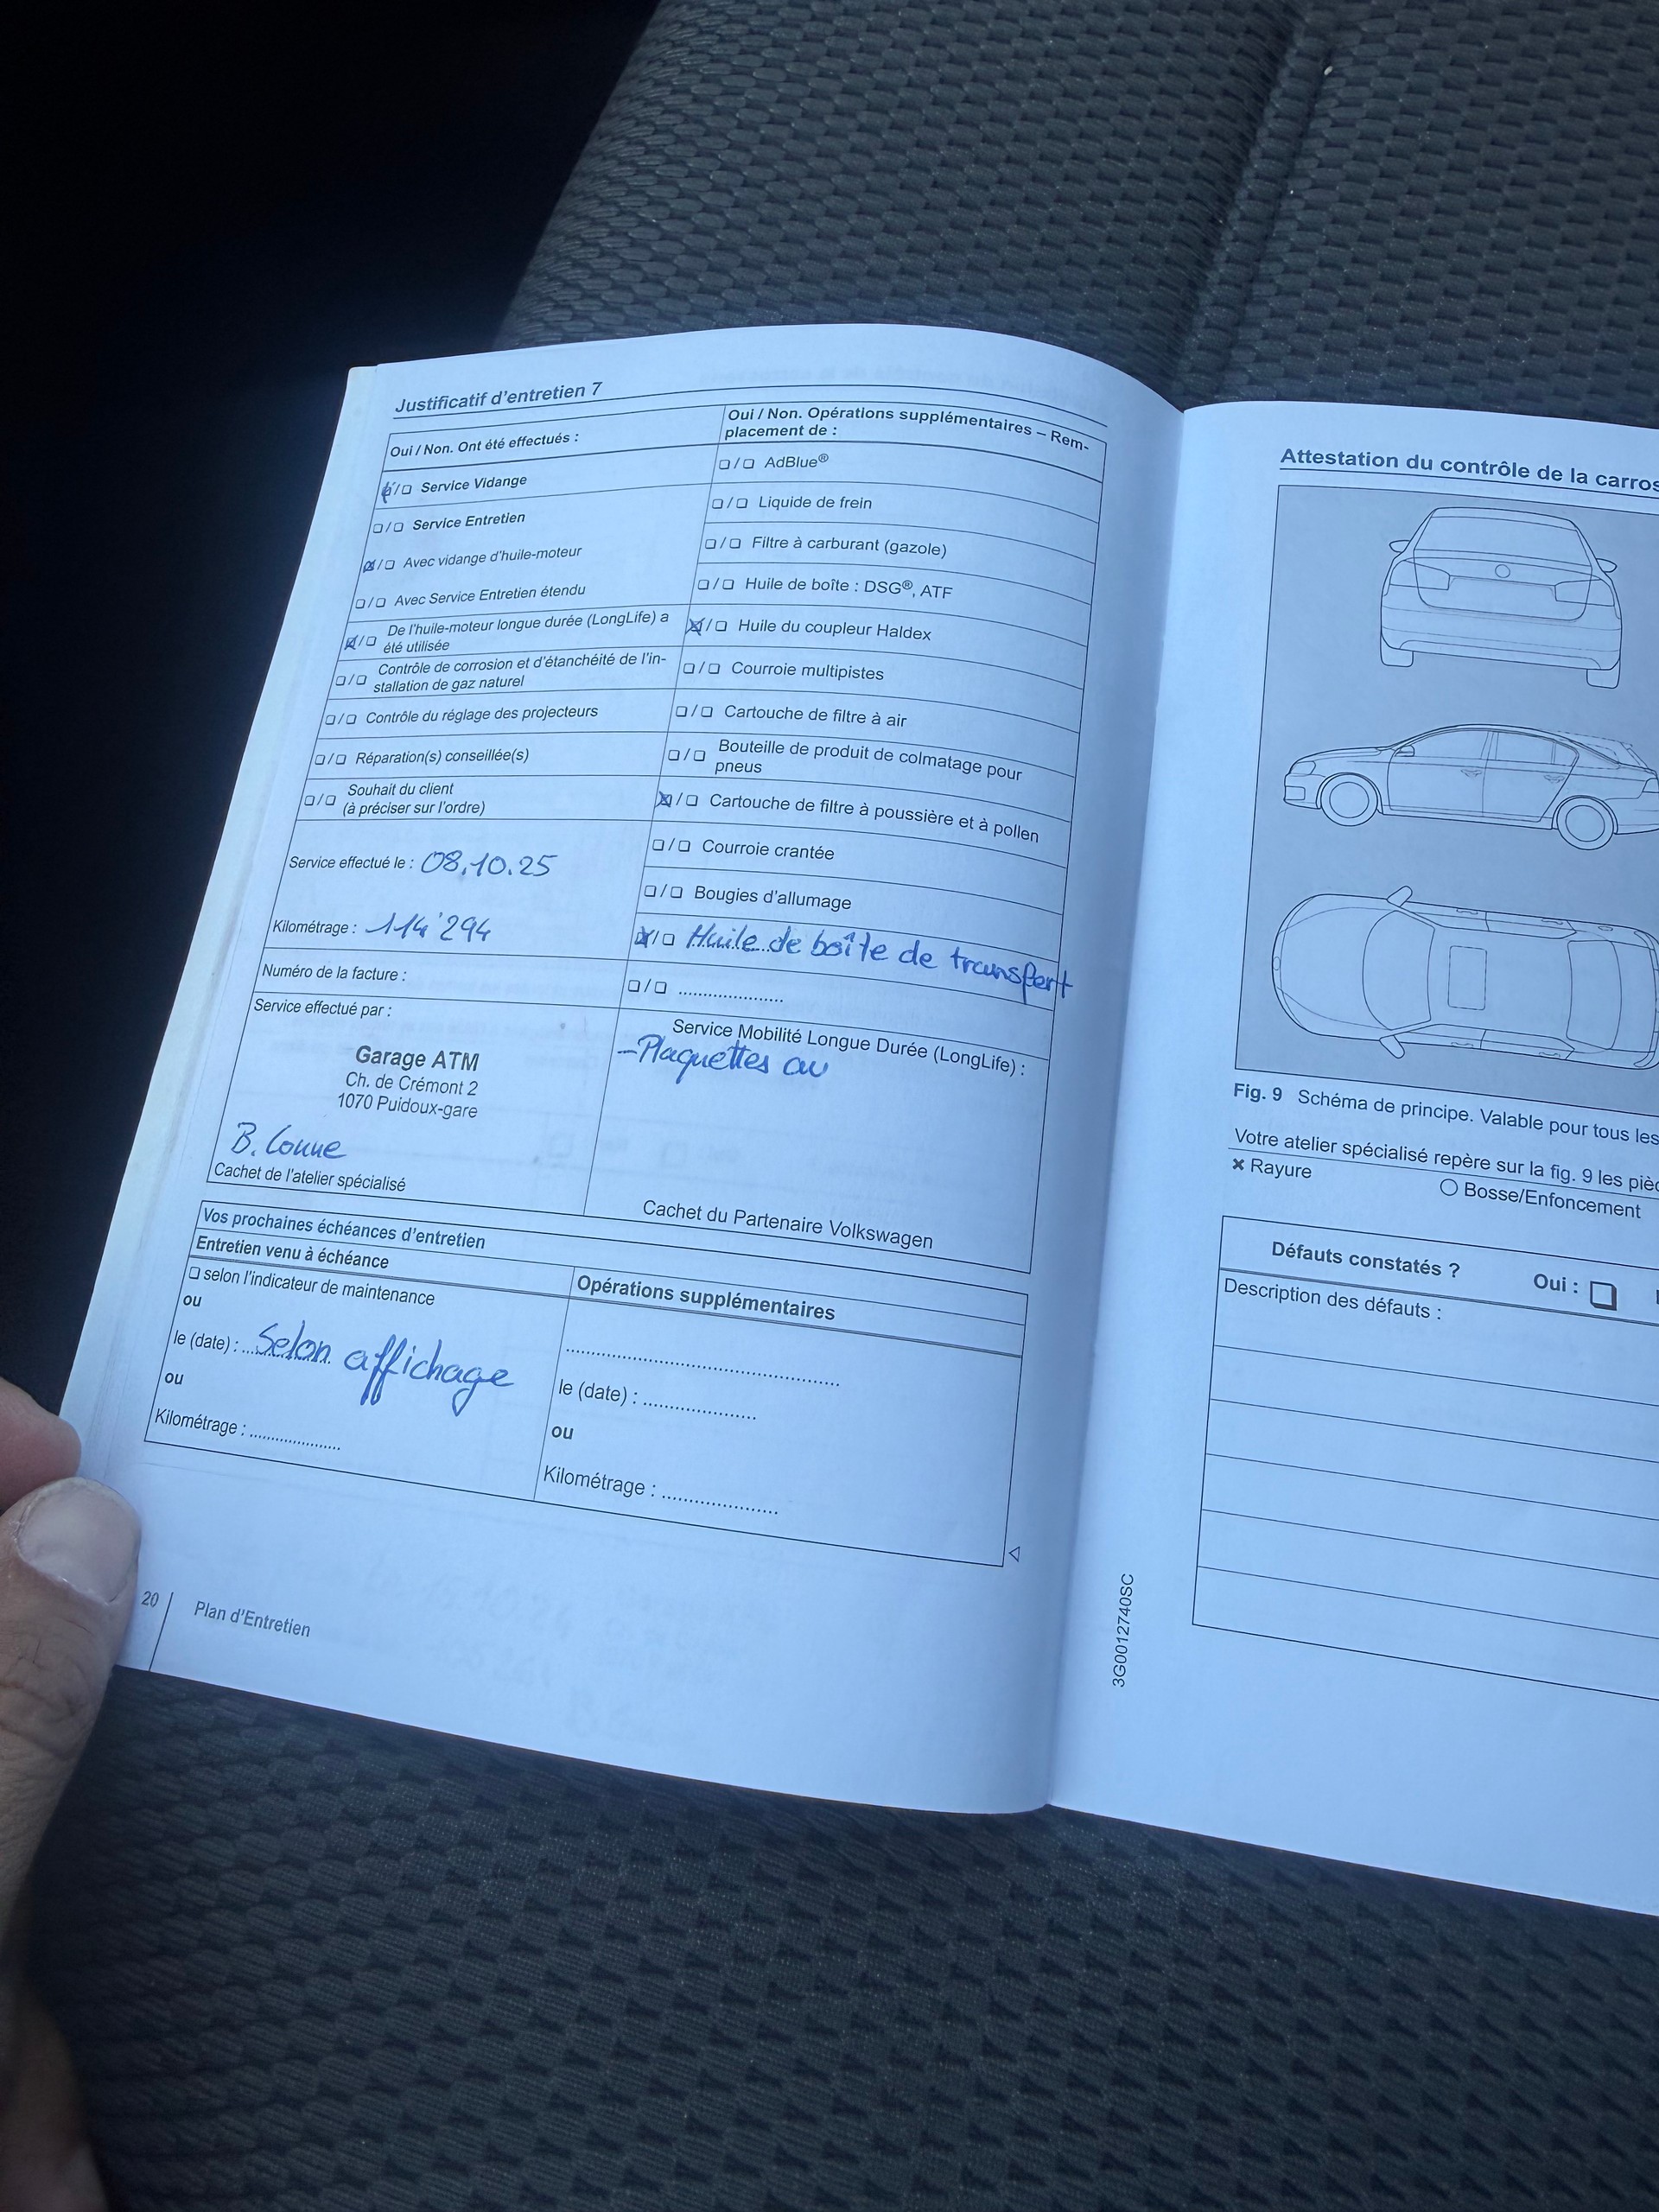 Justificatif d'entretien 7
Oui / Non. Ont été effectués :
☒/❏ Service Vidange
❏/❏ Service Entretien
☒/❏ Avec vidange d'huile-moteur
❏/❏ Avec Service Entretien étendu
☒/❏ De l'huile-moteur longue durée (LongLife) a
été utilisée
❏/❏ Contrôle de corrosion et d'étanchéité de l'in-
stallation de gaz naturel
❏/❏ Contrôle du réglage des projecteurs
❏/❏ Réparation(s) conseillée(s)
❏/❏ Souhait du client
(à préciser sur l'ordre)
Service effectué le : 08.10.25
Kilométrage : 114'294
Numéro de la facture :
Service effectué par :
Garage ATM
Ch. de Crémont 2
1070 Puidoux-gare
B.
Cachet de l'atelier spécialisé
Oui / Non. Opérations supplémentaires – Rem-
placement de :
❏/❏ AdBlue®
❏/❏ Liquide de frein
❏/❏ Filtre à carburant (gazole)
❏/❏ Huile de boîte : DSG®, ATF
☒/❏ Huile du coupleur Haldex
❏/❏ Courroie multipistes
❏/❏ Cartouche de filtre à air
❏/❏ Bouteille de produit de colmatage pour
pneus
☒/❏ Cartouche de filtre à poussière et à pollen
❏/❏ Courroie crantée
❏/❏ Bougies d'allumage
☒/❏ Huile de boîte de transfert
❏/❏ .....................
Service Mobilité Longue Durée (LongLife) :
- Plaquettes av
Cachet du Partenaire Volkswagen
Vos prochaines échéances d'entretien
Entretien venu à échéance
❏ selon l'indicateur de maintenance
ou
le (date) : Selon affichage
ou
Kilométrage : ..................
Opérations supplémentaires
.....................................................
le (date) : ......................
ou
Kilométrage : ......................
20
Plan d'Entretien
Attestation du contrôle de la carros
Fig. 9 Schéma de principe. Valable pour tous les
Votre atelier spécialisé repère sur la fig. 9 les pièc
× Rayure
○ Bosse/Enfoncement
Défauts constatés ?
Oui : ❏
Description des défauts :
3G0012740SC